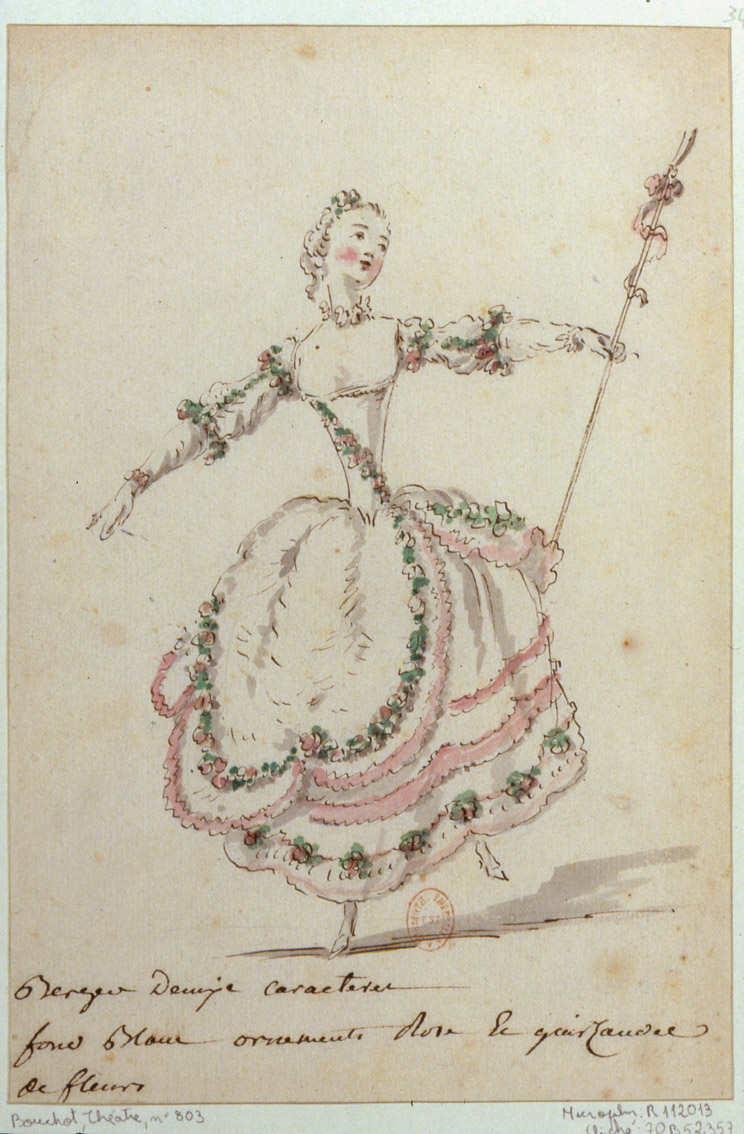 34
Bergere Demye caractere
fond Blanc ornements Rose Et guirlandee
de fleurs
Bouchot, Théâtre, n° 803
Microfilm: R 112013
Cliché: 70 B 52357